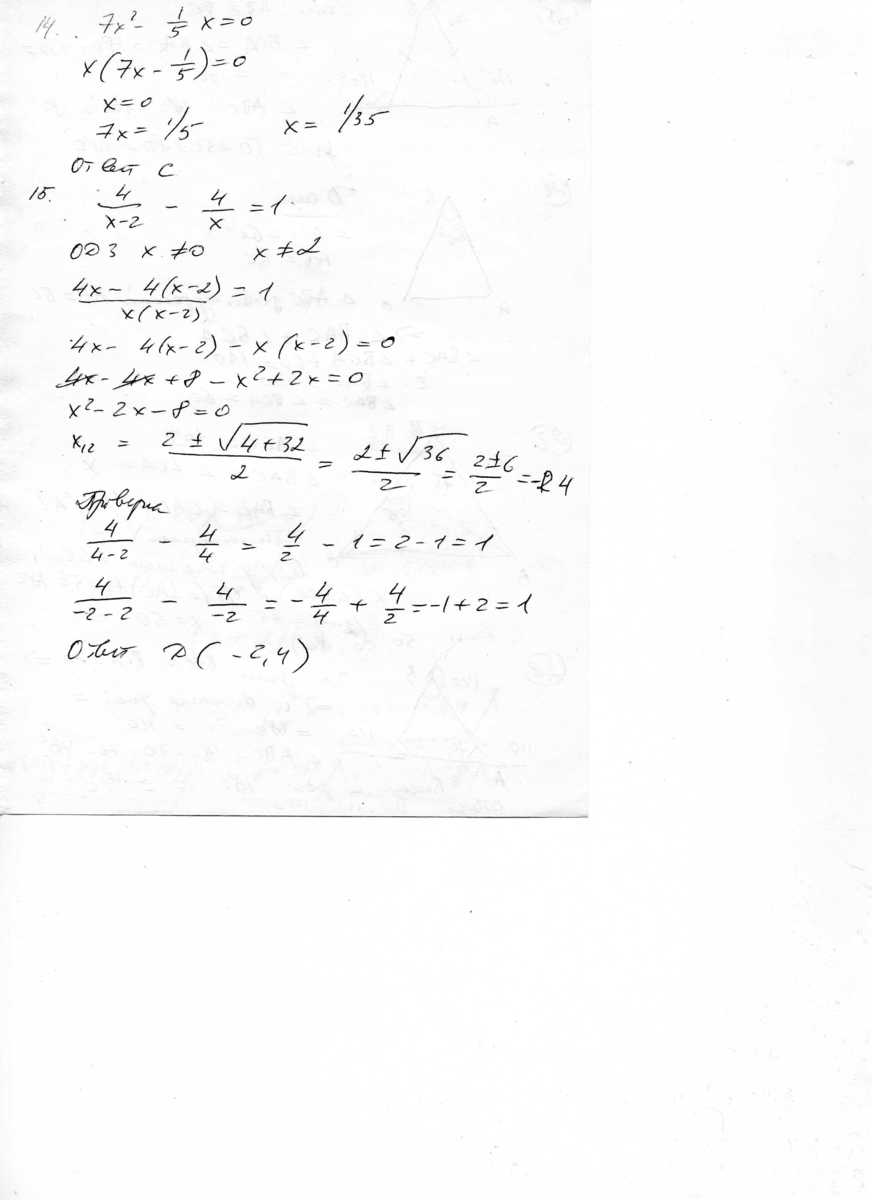 14. 7x² - 1/5 x = 0
x(7x - 1/5) = 0
x = 0
7x = 1/5 x = 1/35
Ответ C
15. 4/(x-2) - 4/x = 1
ОДЗ x ≠ 0 x ≠ 2
(4x - 4(x-2))/(x(x-2)) = 1
4x - 4(x-2) - x(x-2) = 0
4x - 4x + 8 - x² + 2x = 0
x² - 2x - 8 = 0
x₁₂ = (2 ± √(4+32))/2 = (2 ± √36)/2 = (2±6)/2 = -2 4
Проверка
4/(4-2) - 4/4 = 4/2 - 1 = 2 - 1 = 1
4/(-2-2) - 4/(-2) = -4/4 + 4/2 = -1 + 2 = 1
Ответ D (-2, 4)